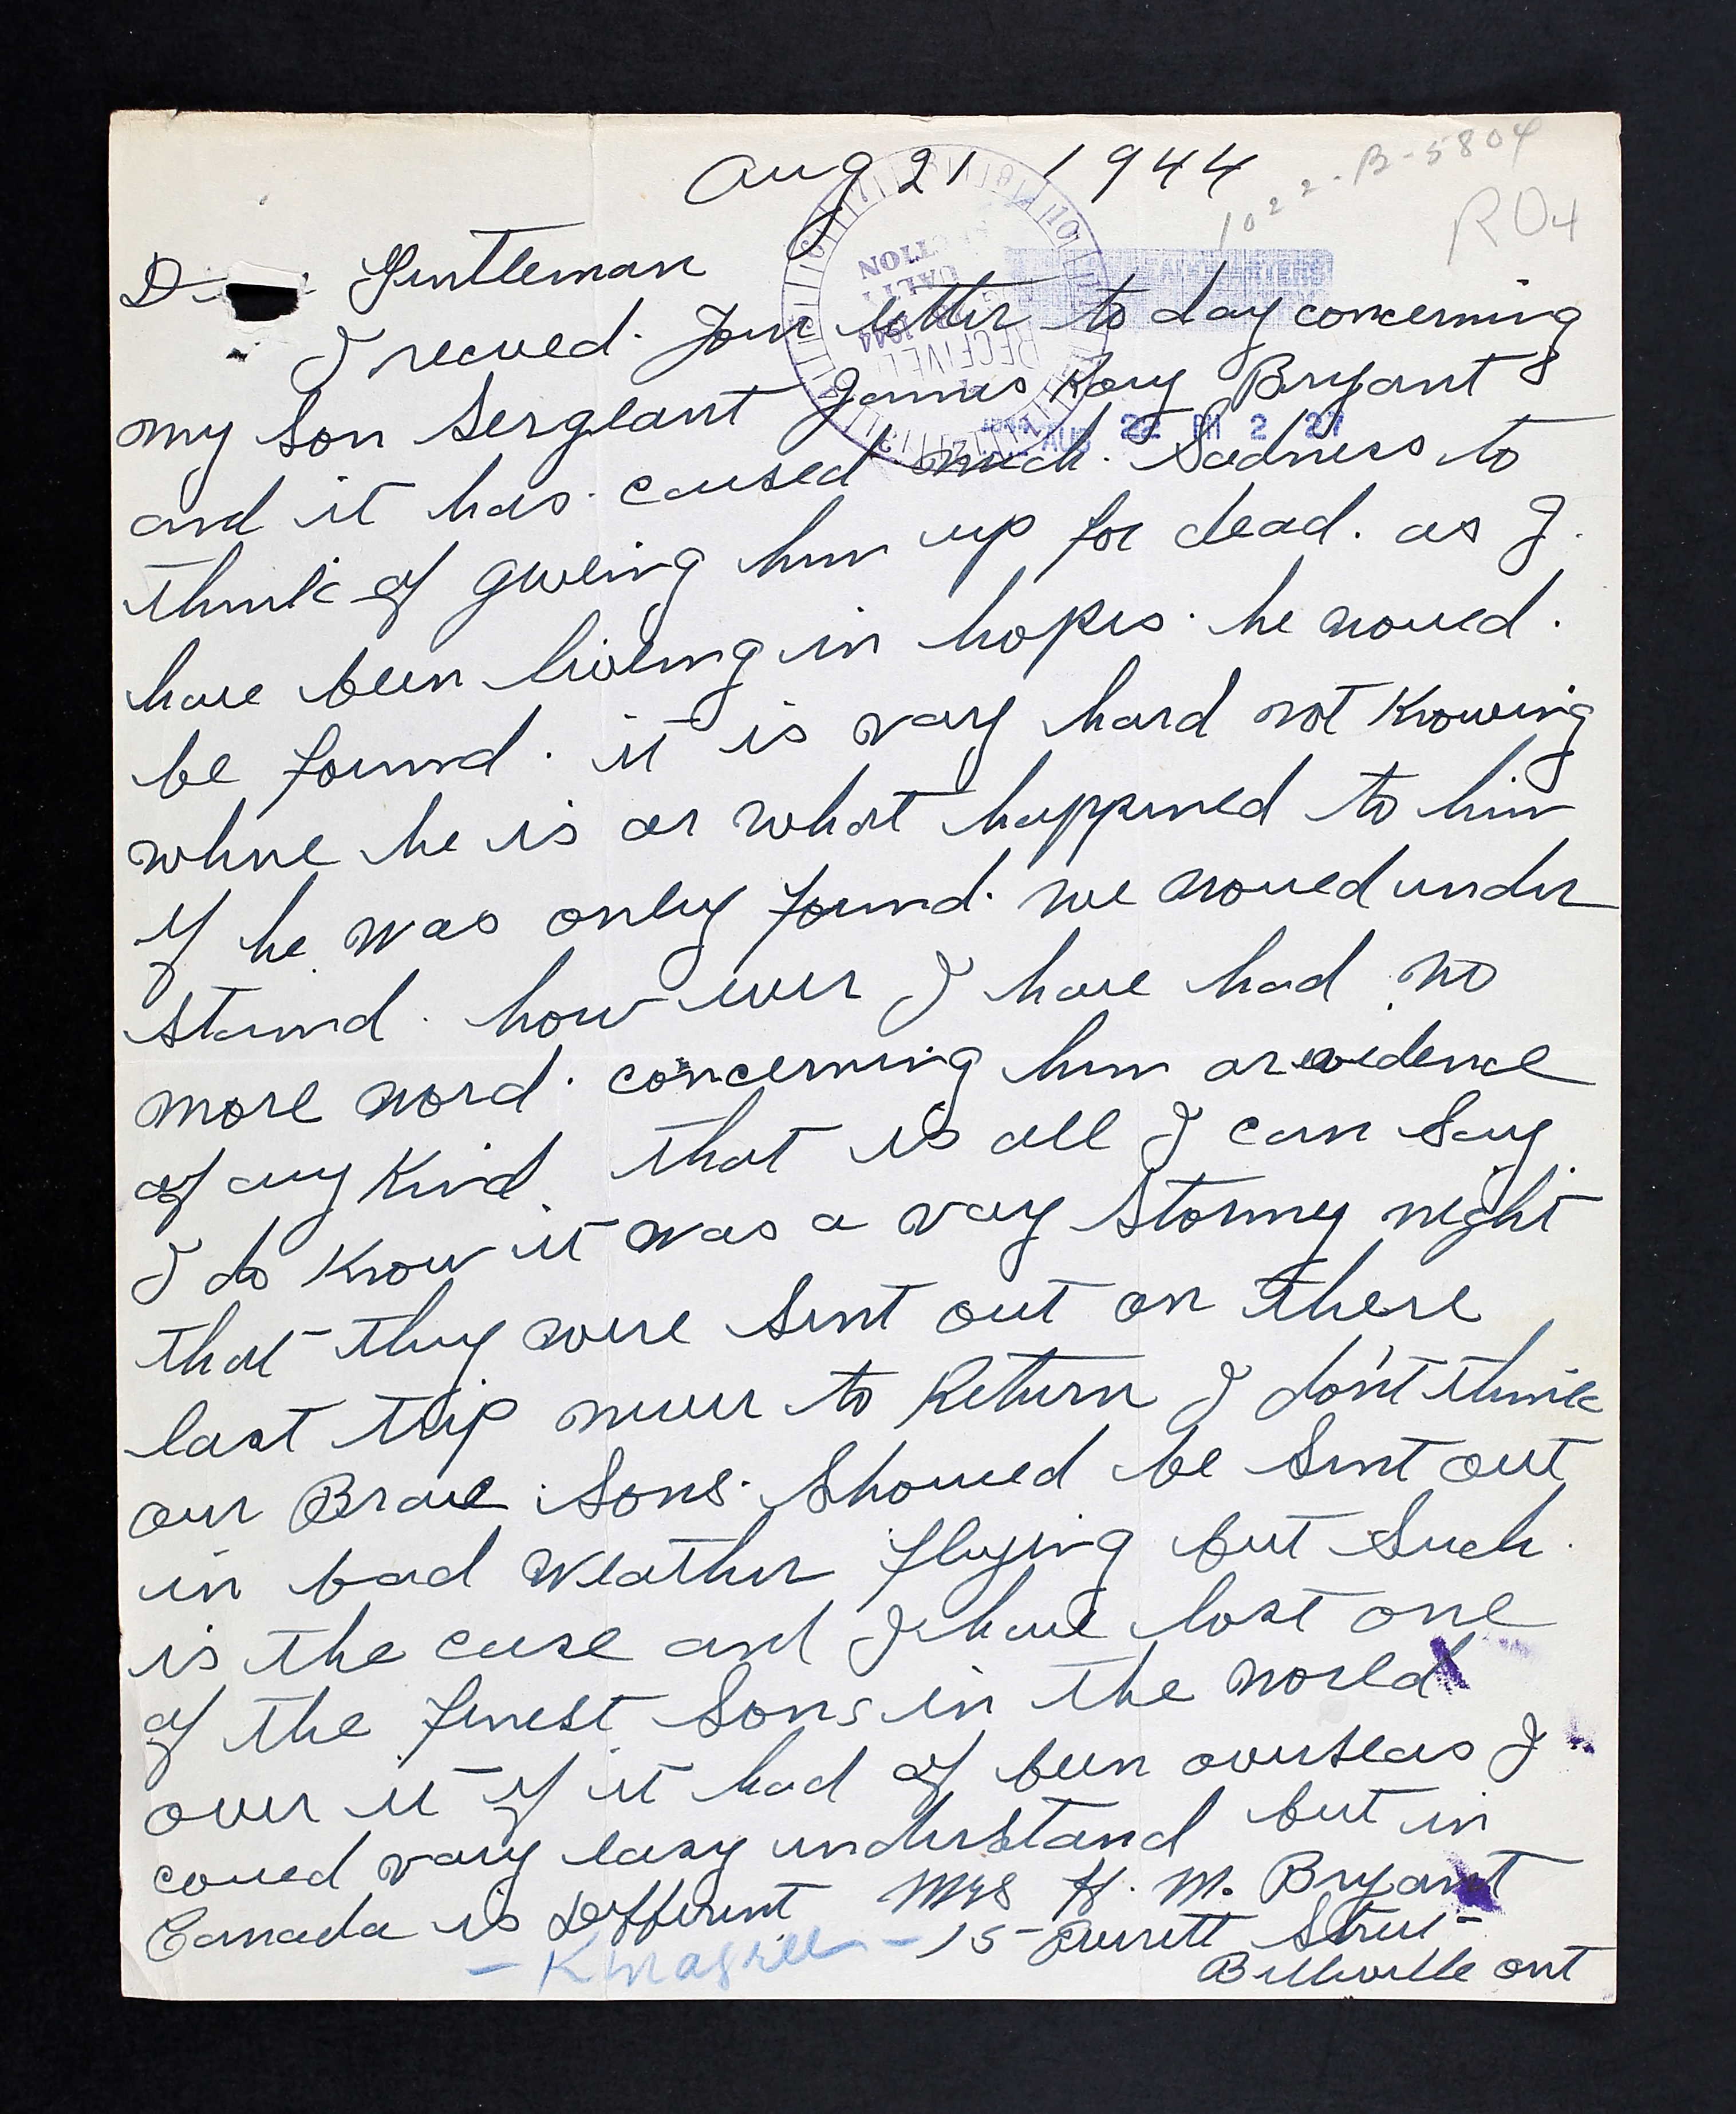 Aug 21 1944
1022-B-5804
RO4
Gentleman
I recived. your letter to day concerning
my son Sergeant James Kay Bryant
AUG 22 PM 2 27
and it has. caused much. Sadness to
think of giveing him up for dead. as I.
have been liveing in hopes. he woued.
be found. it is vary hard not Knowing
where he is or what happened to him
if he was only found. we woued under
stand. how ever I have had no
more word. concerning him or evidence
of any Kind. that is all I can Say.
I do Know it was a vary Stormey night
that they were Sent out on there
last trip never to Return I don't think
our Brave Sons. Shoued be Sent out
in bad weather flying but Such.
is the case and I have lost one
of the finest Sons in the world
over it if it had of been overseas I
coued vary easy understand but in
Canada is Different Mrs H. M. Bryant
15- Everett Street
Belleville ont